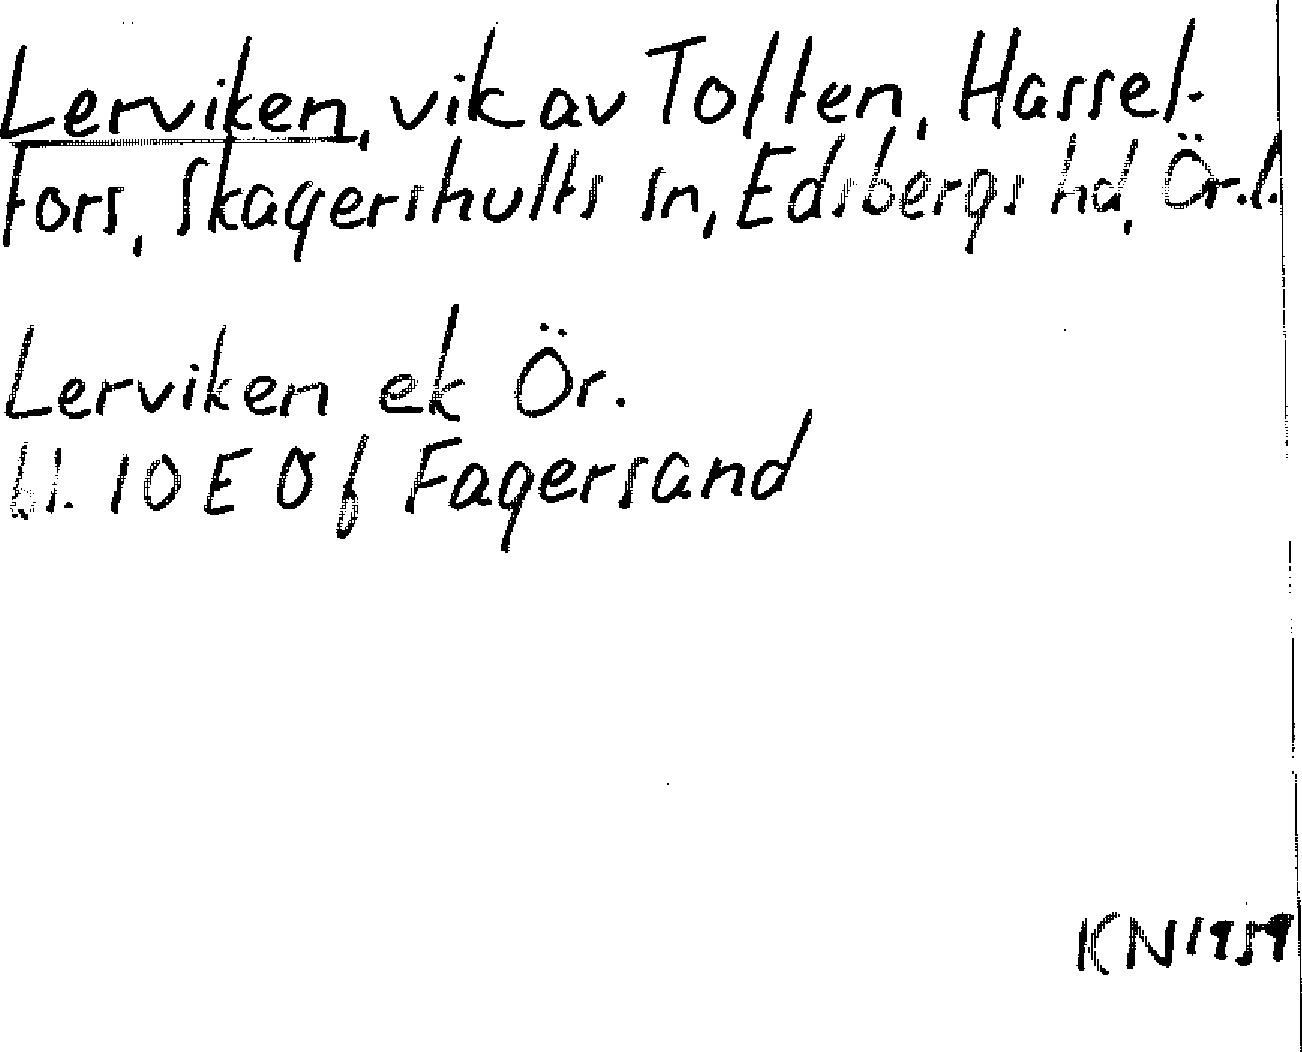 Lerviken, vik av Toften, Hassel-
fors, Skagershults sn, Edsbergs hd, Ör.l.
Lerviken ek Ör.
bl. 10 E 0 f Fagersand
KN 1959